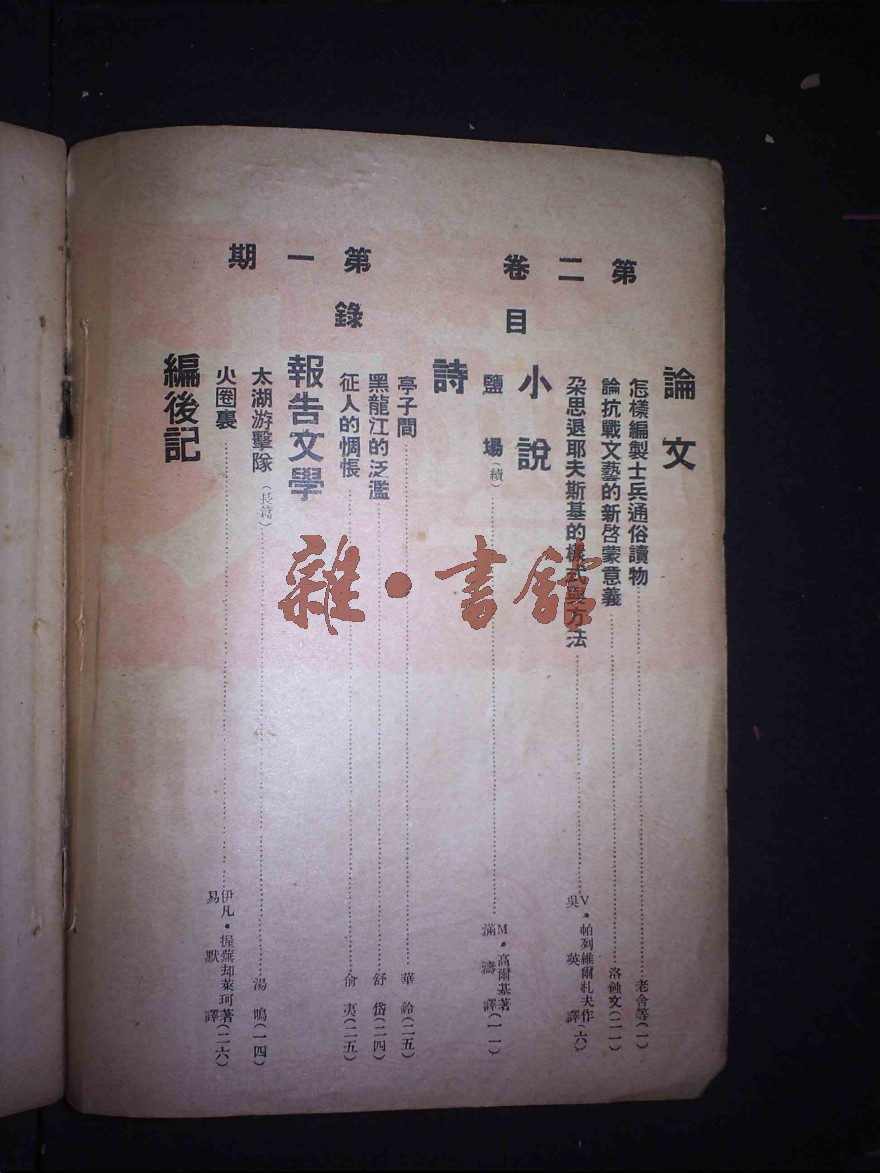 第二卷 第一期
目錄
論文
怎樣編製士兵通俗讀物 老舍等(一)
論抗戰文藝的新啓蒙意義 洛蝕文(二一)
朶思退耶夫斯基的樣式與方法 V·帕列維爾札夫作 吳英譯(六)
小說
鹽場(續) M·高爾基著 滿濤譯(一一)
詩
亭子間 華鈴(二五)
黑龍江的泛濫 舒岱(二四)
征人的惆悵 俞夷(二五)
報告文學
太湖游擊隊(長篇) 湯鳴(一四)
火圈裏 伊凡·握蕪却萊珂著 易默譯(二六)
編後記
雜·書館